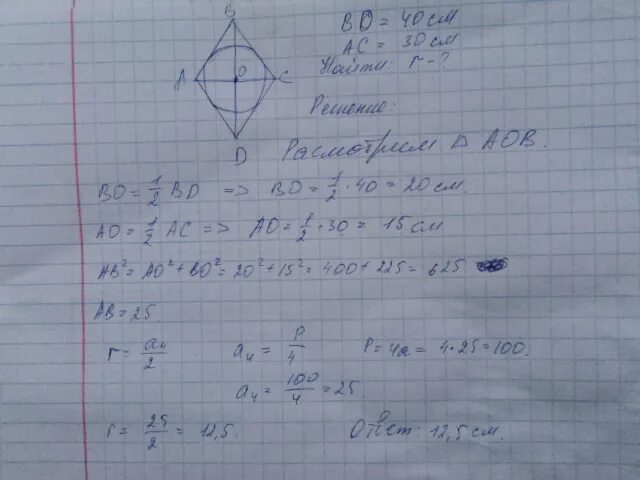 B
A
O
C
D
BD = 40 см
AC = 30 см
Найти: r - ?
Решение:
Расмотрим △ AOB.
BO = 1/2 BD => BO = 1/2 · 40 = 20 см.
AO = 1/2 AC => AO = 1/2 · 30 = 15 см
AB² = AO² + BO² = 20² + 15² = 400 + 225 = 625
AB = 25.
r = a₄/2 a₄ = P/4 P = 4a = 4 · 25 = 100.
a₄ = 100/4 = 25.
r = 25/2 = 12,5. Ответ: 12,5 см.